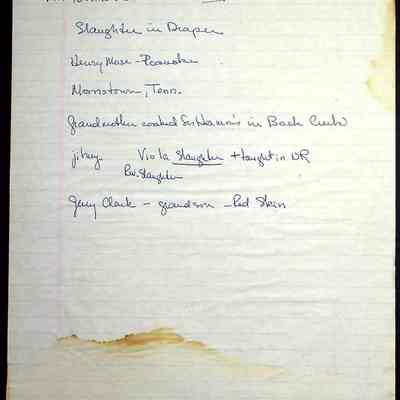 Slaughter in Draper
Henry Muse - Promoter
Morristown, Tenn.
Grandmother cooked in Back Creek
jitney. Viola Slaughter + taught in NR
Rev. Slaughter
Gary Clark - grandson - Red Skin